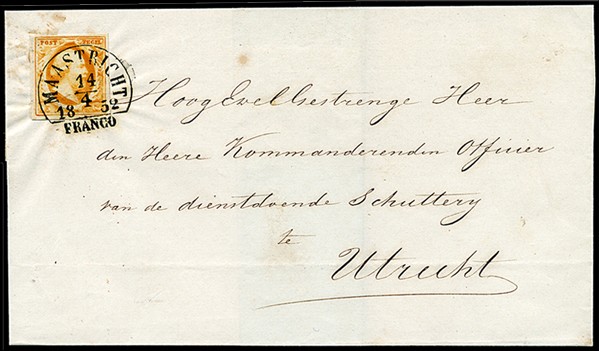 POST ZEGEL
MAASTRICHT
14
4
18 52
FRANCO
HoogEdelGestrenge Heer
den Heere Kommanderenden Officier
van de dienstdoende Schuttery
te
Utrecht